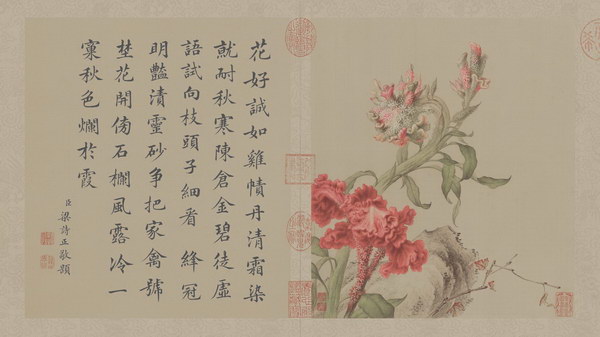 花好誠如雞幘丹清霜染
就耐秋寒陳倉金碧徒虛
語試向枝頭子細看 絳冠
明豔漬靈砂爭把家禽號
埜花開傍石欄風露冷一
窠秋色爛於霞
臣梁詩正敬題